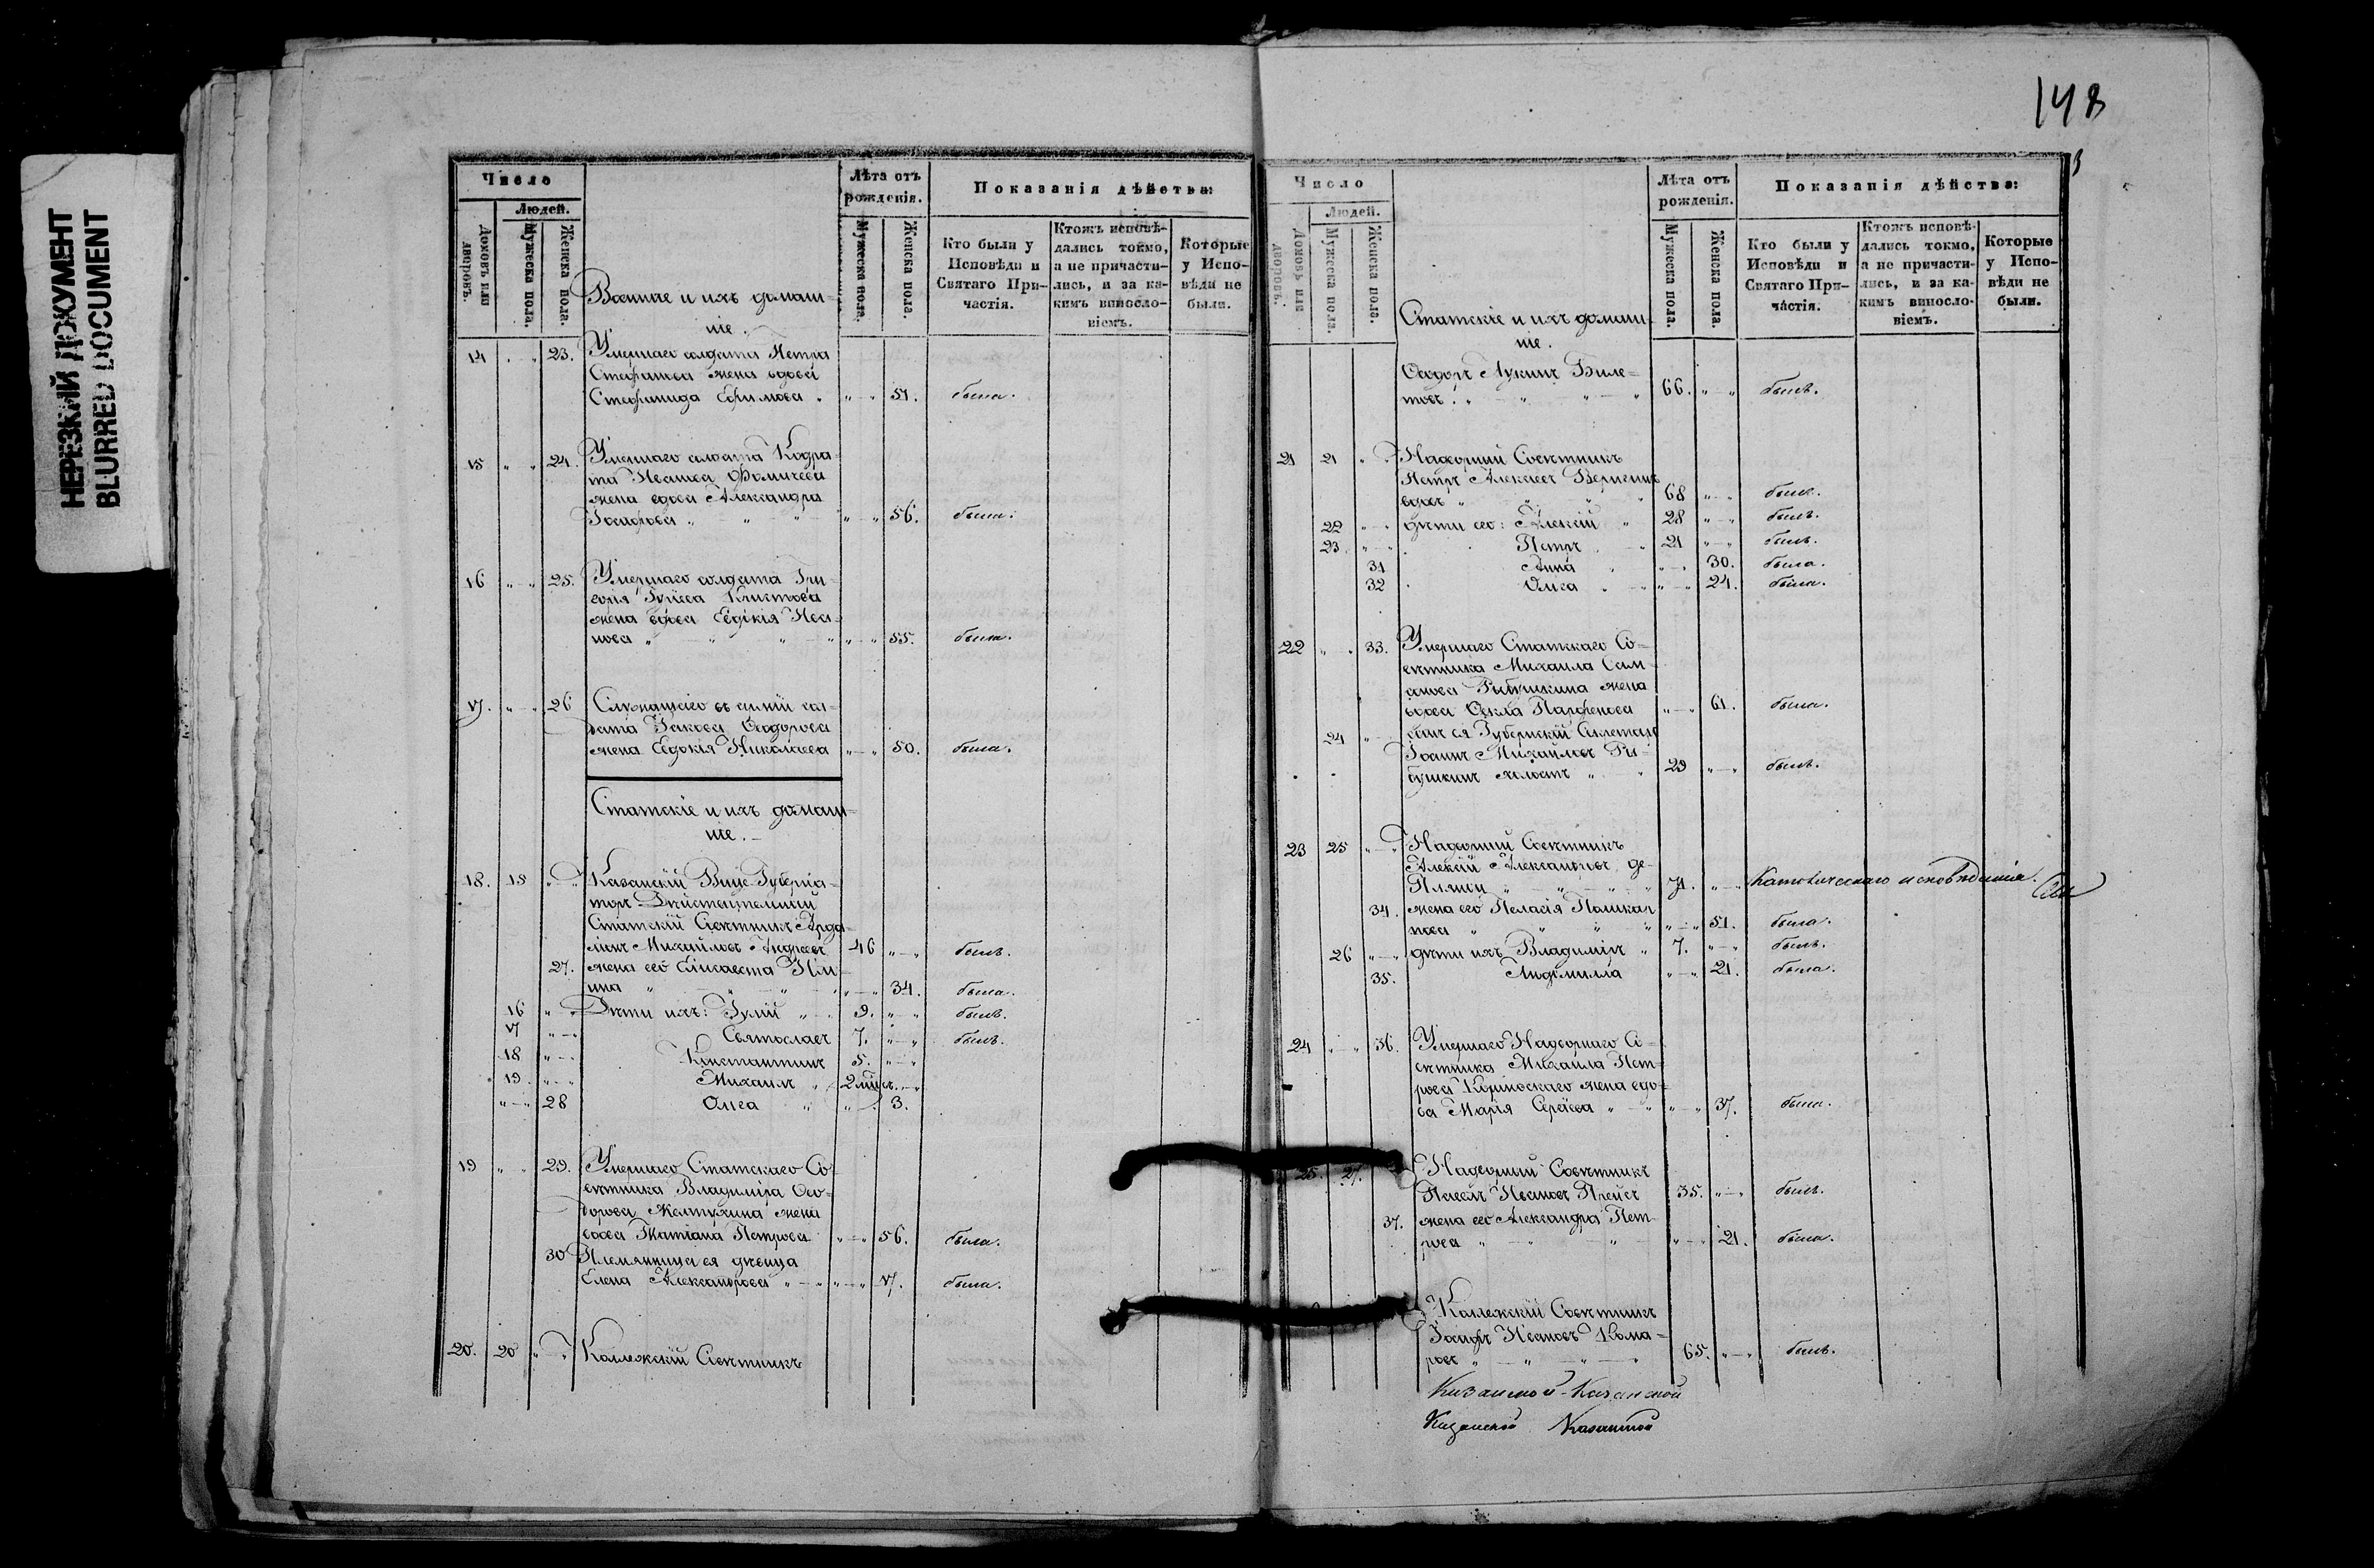 НЕРЕЗКИЙ ДОКУМЕНТ
BLURRED DOCUMENT
Число
Людей.
Домовъ или дворовъ.
Мужеска пола.
Женска пола.
Лѣта отъ рожденія.
Мужеска пола.
Женска пола.
Показанія дѣйства:
Кто были у Исповѣди и Святаго Причастія.
Ктожъ исповѣдались токмо, а не причастились, и за какимъ винословіемъ.
Которые у Исповѣди не были.
Военные и ихъ домаш-
ніе.
14 23. Умершаго солдата Петра
Стефанова жена вдова
Стефанида Ефимова 51. была.
15 24. Умершаго солдата Кодра-
та Иванова жена вдова Александра
Іосифова 56. была.
16 25. Умершаго солдата Гри-
горія жена вдова Евдокія Ива-
нова 55. была.
17. 26 Служащаго въ арміи сол-
дата Іакова Ѳеодорова
жена Евдокія Николаева 50. была.
Статскіе и ихъ домаш-
ніе.
18. 15 Казанскій Вице-Губерна-
торъ Дѣйствительный
Статскій Совѣтникъ Арда-
ліонъ Михайловъ Андреевъ 46 былъ.
27. жена его Елисавета
34. была.
16 Дѣти ихъ: Іулій 9. былъ.
17 Святославъ 7. былъ.
18 Константинъ 5.
19. Михаилъ 2
28 Олга 3.
19 29. Умершаго Статскаго Со-
вѣтника Владиміра Ѳео-
дорова Желтухина жена
вдова Татіана Петрова 56. была.
30 Племянница ея дѣвица
Елена Александрова 17. была.
20. 20 Коллежскій Совѣтникъ
148
Число
Людей.
Домовъ или дворовъ.
Мужеска пола.
Женска пола.
Лѣта отъ рожденія.
Мужеска пола.
Женска пола.
Показанія дѣйства:
Кто были у Исповѣди и Святаго Причастія.
Ктожъ исповѣдались токмо, а не причастились, и за какимъ винословіемъ.
Которые у Исповѣди не были.
Статскіе и ихъ домаш-
ніе.
Ѳеодоръ Лукинъ Биле-
товъ 66. былъ.
21 21 Надворный Совѣтникъ
Петръ Алексеевъ
вдовъ 68 былъ.
22 дѣти его: Алексій 28 былъ.
23 Петръ 21 былъ.
31 Анна 30. была.
32 Олга 24. была.
22 33. Умершаго Статскаго Со-
вѣтника Михаила Сам-
сонова Рыбушкина жена
вдова Ѳекла Парфенова 61. была.
24 сынъ ея Губернскій Секретарь
Іоаннъ Михайловъ Ры-
бушкинъ холостъ 29 былъ.
23 25 Надворный Совѣтникъ
Алексій Александровъ де-
Планси 71. Католическаго исповѣданія.
34. жена его Пелагія
51. была.
26 дѣти ихъ Владиміръ 7. былъ.
35. Людмилла 21. была.
24 36. Умершаго Надворнаго Со-
вѣтника Михаила Пет-
рова жена вдо-
ва Марія Сергіева 37. была.
25. 27. Надворный Совѣтникъ
Павелъ Ивановъ 35. былъ.
37. жена его Александра Пет-
рова 21. была.
Коллежскій Совѣтникъ
Іосифъ Ивановъ Кома-
ровъ 65. былъ.
Казанской Казанской
Казанской Казанской